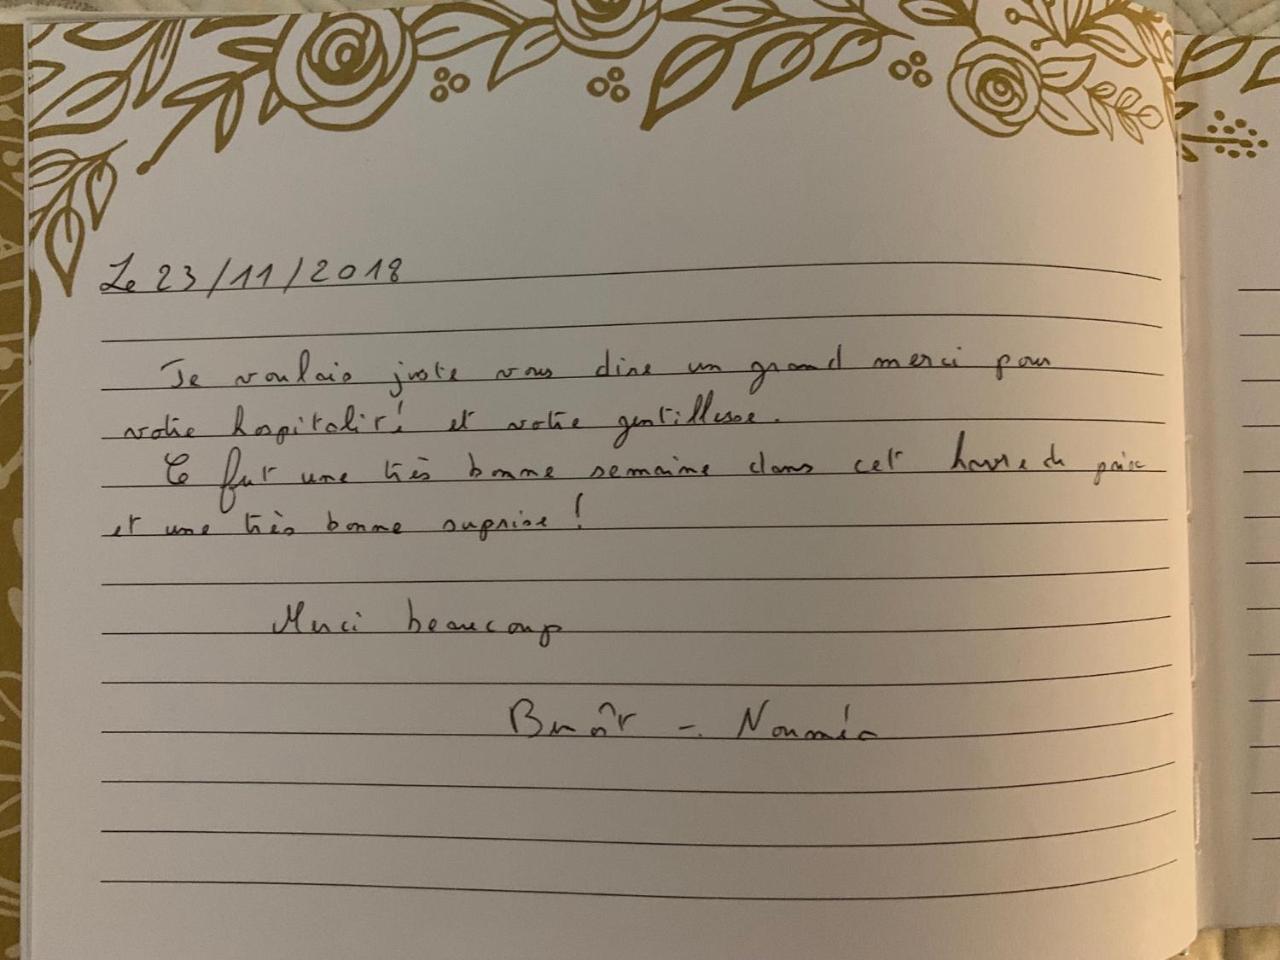 Le 23/11/2018
Je voulais juste vous dire un grand merci pour
votre hospitalité et votre gentillesse.
Ce fut une très bonne semaine dans cet havre de paix
et une très bonne suprise !
Merci beaucoup
Benoît - Nouméa